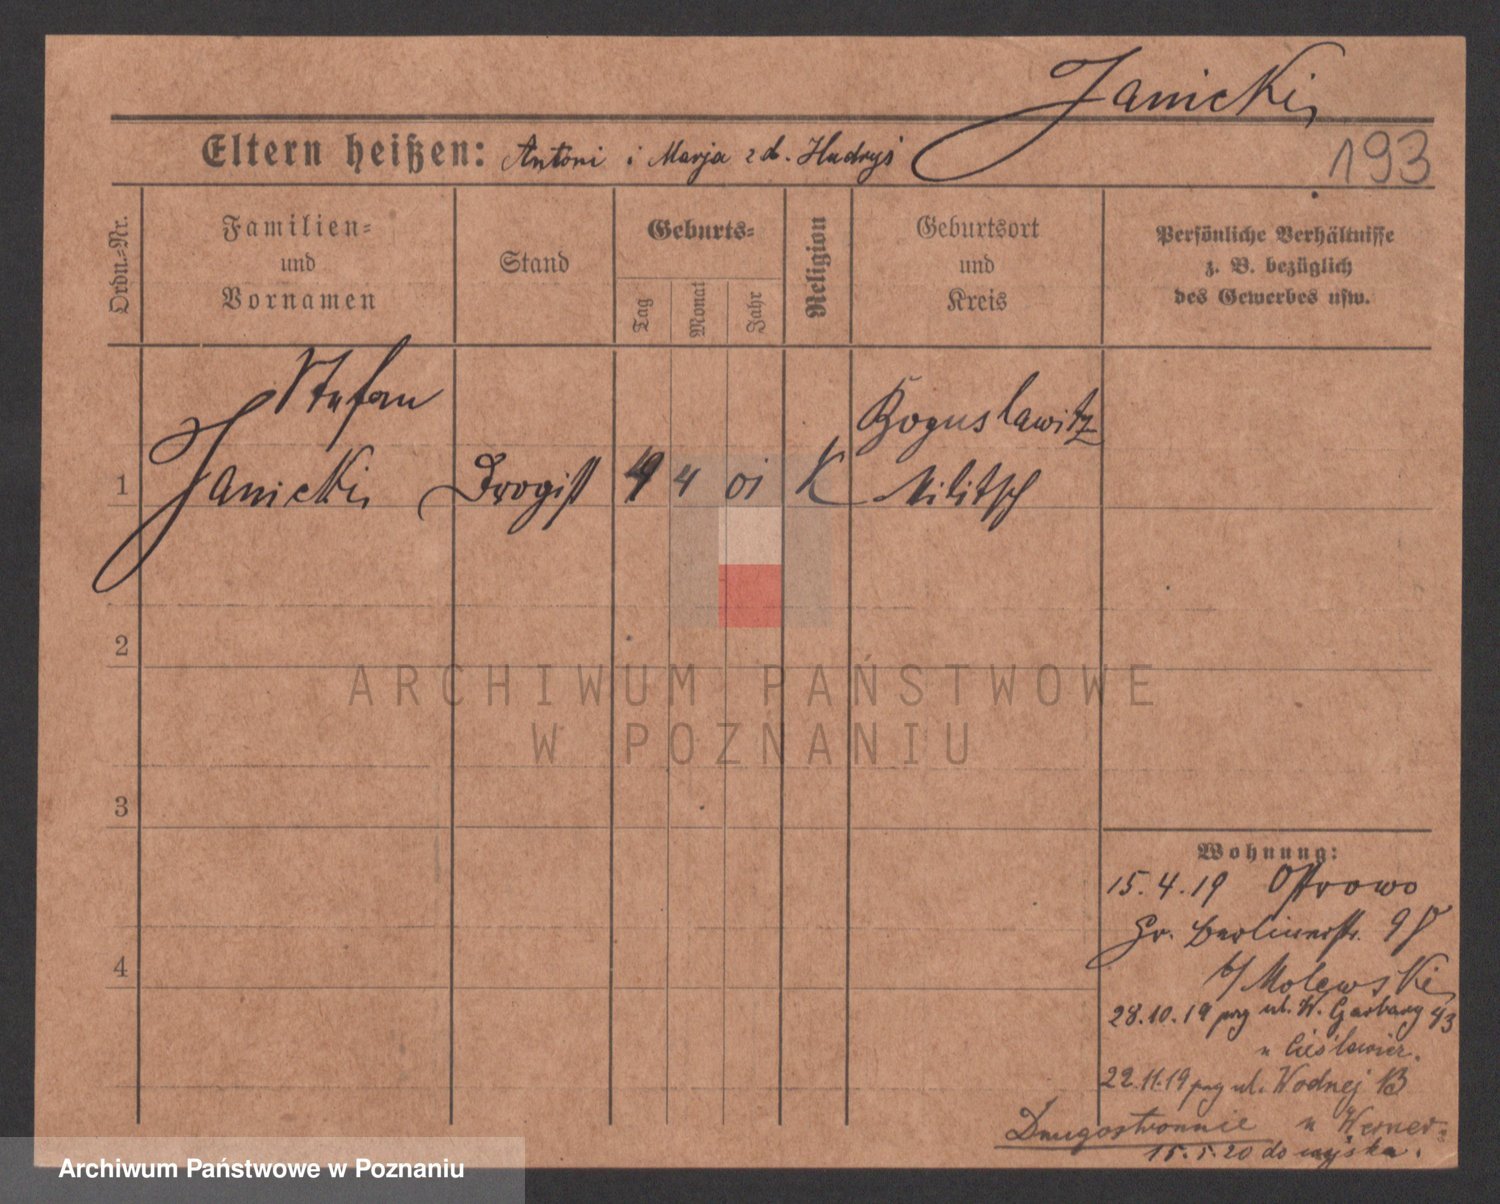 Janicki
Eltern heißen: Antoni i Marja z d. Hadryś
193
Ordn.-Nr.
Familien-
und
Vornamen
Stand
Geburts-
Tag
Monat
Jahr
Religion
Geburtsort
und
Kreis
Persönliche Verhältnisse
z. B. bezüglich
des Gewerbes usw.
Stefan
Boguslawitz
1 Janicki Drogist 4 01 K Militsch
2
ARCHIWUM PAŃSTWOWE
W POZNANIU
3
Wohnung:
15.4.19 Ostrowo
Gr. Berlinerstr.
b/ Molewski
4
28.10.19 przy ul. W. Garbary 43
u
22.11.19 przy ul. Wodnej 13
Drugostronnie u Werner
15.5.20 do wojska.
Archiwum Państwowe w Poznaniu